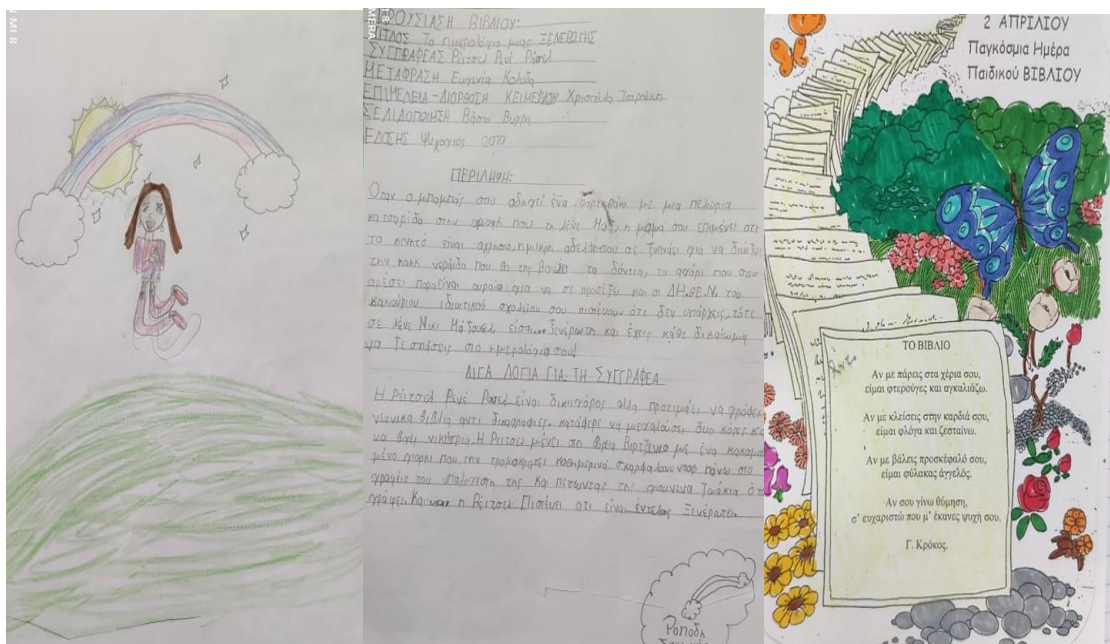 MI 8
ΠΑΡΟΥΣΙΑΣΗ ΒΙΒΛΙΟΥ:
ΤΙΤΛΟΣ Το ημερολόγιο μιας ΞΕΝΕΡΩΤΗΣ
ΣΥΓΓΡΑΦΕΑΣ Ρέιτσελ Ρενέ Ράσελ
ΜΕΤΑΦΡΑΣΗ Ευγενία
ΕΠΙΜΕΛΕΙΑ-ΔΙΟΡΘΩΣΗ ΚΕΙΜΕΝΟΥ
ΣΕΛΙΔΟΠΟΙΗΣΗ Βάσω
ΕΔΩΣΗΣ Ψυχογιος 2010
ΠΕΡΙΛΗΨΗ:
Όταν ο μπαμπάς σου οδηγεί ένα φορτηγάκι με μια πελώρια
κατσαρίδα στην οροφή που τη λένε Μαξ, η μαμα σου επιμένει οτι
το κινητό είναι αχρηστο, η μικρη αδελφή σου σε ξυπνάει για να διώξεις
την κακη νεράιδα που θα της βγάλει τα δόντια, το αγόρι που σου
αρέσει παραείναι ωραίο για να σε προσέξει και οι ΔΗΘΕΝ του
καινούριου ιδιωτικού σχολείου σου πιστεύουν ότι δεν υπάρχεις, τότε
σε λένε Νικι Μάξουελ είσαι ξενέρωτη και έχεις κάθε δικαίωμα
να ξεσπάσεις στο ημερολόγιο σου!
ΛΙΓΑ ΛΟΓΙΑ ΓΙΑ ΤΗ ΣΥΓΓΡΑΦΕΑ
Η Ρέιτσελ Ρενέ Ράσελ είναι δικηγόρος αλλα προτιμάει να γράφει
νεανικα βιβλια αντι δικογραφιες. κατάφερε να μεγαλώσει δυο κόρες και
να βγει νικήτρια. Η Ρειτσελ μένει στη βόρια Βιρτζίνια με ένα κακομαθη
μένο γιόρκι που την τρομοκρατεί καθημερινά σκαρφαλώνοντας πάνω στο
γραφείο του υπολογιστη της και πετώντας της χνουδωτά ζωάκια ότ
γράφει. Και ναι η Ρέιτσελ Πιστεύει οτι είναι εντελως Ξενέρωτη.
2 ΑΠΡΙΛΙΟΥ
Παγκόσμια Ημέρα
Παιδικού ΒΙΒΛΙΟΥ
ΤΟ ΒΙΒΛΙΟ
Αν με πάρεις στα χέρια σου,
είμαι φτερούγες και αγκαλιάζω.
Αν με κλείσεις στην καρδιά σου,
είμαι φλόγα και ζεσταίνω.
Αν με βάλεις προσκέφαλό σου,
είμαι φύλακας άγγελός.
Αν σου γίνω θύμηση,
σ' ευχαριστώ που μ' έκανες ψυχή σου.
Γ. Κρόκος.